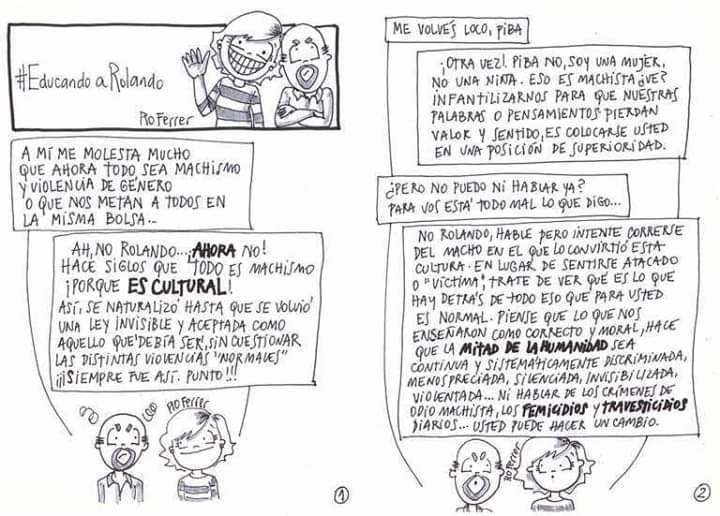 #Educando a Rolando
Ro Ferrer
A MÍ ME MOLESTA MUCHO
QUE AHORA TODO SEA MACHISMO
Y VIOLENCIA DE GÉNERO
O QUE NOS METAN A TODOS EN
LA MISMA BOLSA...
AH, NO ROLANDO... ¡AHORA NO!
HACE SIGLOS QUE TODO ES MACHISMO
¡PORQUE ES CULTURAL!
ASÍ, SE NATURALIZÓ HASTA QUE SE VOLVIÓ
UNA LEY INVISIBLE Y ACEPTADA COMO
AQUELLO QUE DEBÍA SER, SIN CUESTIONAR
LAS DISTINTAS VIOLENCIAS "NORMALES"
¡¡¡SIEMPRE FUE ASÍ. PUNTO!!!
Ro Ferrer
1
ME VOLVÉS LOCO, PIBA
¡OTRA VEZ! PIBA NO, SOY UNA MUJER,
NO UNA NIÑA. ESO ES MACHISTA ¿VE?
INFANTILIZARNOS PARA QUE NUESTRAS
PALABRAS O PENSAMIENTOS PIERDAN
VALOR Y SENTIDO, ES COLOCARSE USTED
EN UNA POSICIÓN DE SUPERIORIDAD.
¿PERO NO PUEDO NI HABLAR YA?
PARA VOS ESTÁ TODO MAL LO QUE DIGO...
NO ROLANDO, HABLE PERO INTENTE CORRERSE
DEL MACHO EN EL QUE LO CONVIRTIÓ ESTA
CULTURA. EN LUGAR DE SENTIRSE ATACADO
O "VÍCTIMA", TRATE DE VER QUÉ ES LO QUE
HAY DETRÁS DE TODO ESO QUE PARA USTED
ES NORMAL. PIENSE QUE LO QUE NOS
ENSEÑARON COMO CORRECTO Y MORAL, HACE
QUE LA MITAD DE LA HUMANIDAD SEA
CONTINUA Y SISTEMÁTICAMENTE DISCRIMINADA,
MENOSPRECIADA, SILENCIADA, INVISIBILIZADA,
VIOLENTADA... NI HABLAR DE LOS CRÍMENES DE
ODIO MACHISTA, LOS FEMICIDIOS Y TRAVESTICIDIOS
DIARIOS... USTED PUEDE HACER UN CAMBIO.
Ro Ferrer
2